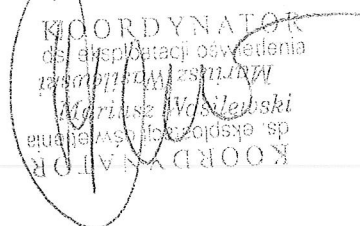 KOORDYNATOR
ds. eksploatacji oświetlenia
Mariusz Wasilewski
Mariusz Wasilewski
ds. eksploatacji oświetlenia
KOORDYNATOR